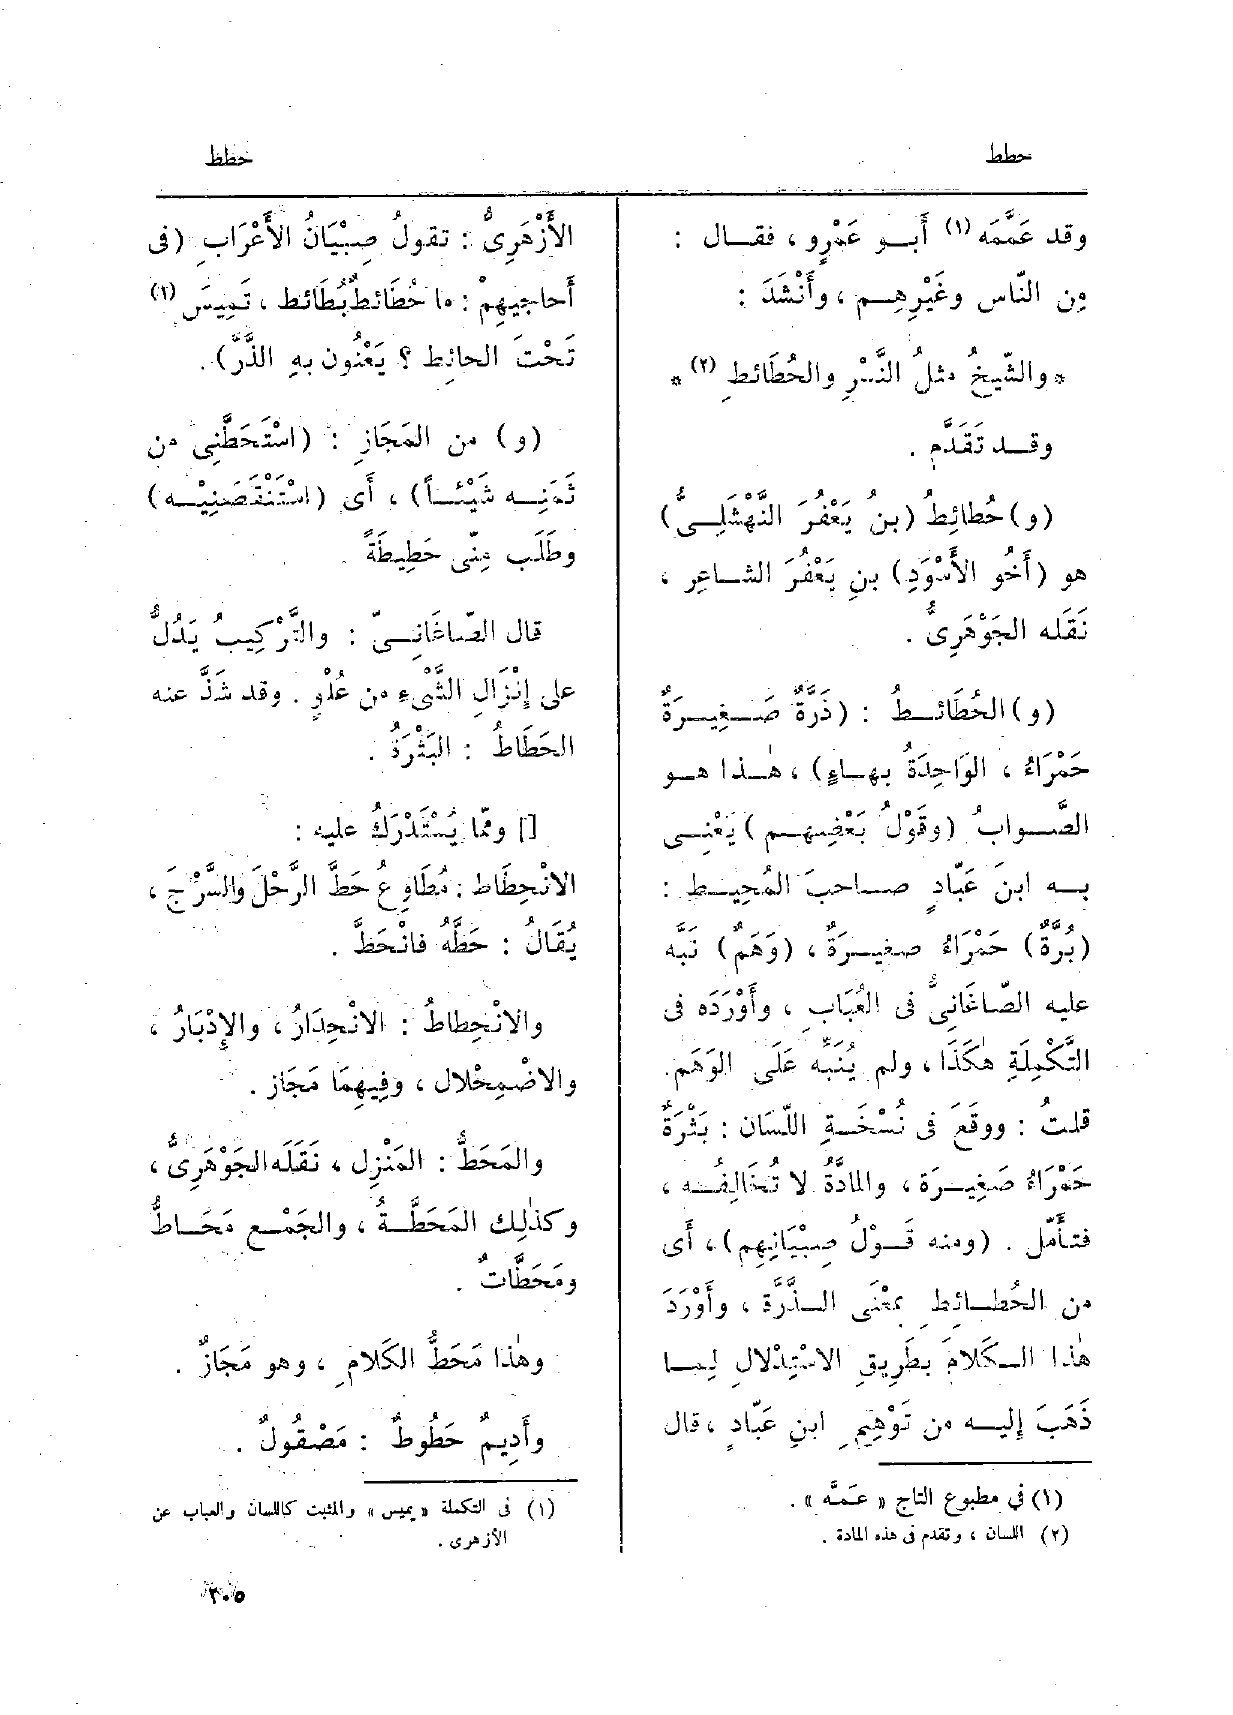 حطط
حطط
وقد عَمَّمَه (١) أَبو عَمْرٍو ، فقال :
مِن النّاس وغَيْرِهِم ، وأَنْشَدَ :
* والشّيخُ مثلُ النَّسْرِ والحُطَائطِ (٢) *
وقد تَقَدَّم .
(و) حُطائِطُ (بنُ يَعْفُرَ النَّهْشَلِىُّ)
هو (أَخُو الأَسْوَدِ) بنِ يَعْفُرَ الشاعِرِ ،
نَقَلَه الجَوْهَرِىُّ .
(و) الحُطَائطُ : (ذَرَّةٌ صَغِيرَةٌ
حَمْرَاءُ ، الوَاحِدَةُ بهاءٍ) ، هٰذا هو
الصَّوابُ (وقَوْلُ بَعْضِهم) يَعْنِى
به ابنَ عَبّادٍ صاحبَ المُحِيط :
(بُرَّةٌ) حَمْرَاءُ صغيرَةٌ ، (وَهَمٌ) نَبَّه
عليه الصّاغَانِىُّ فى العُبَابِ ، وأَوْرَدَه فى
التَّكْمِلَةِ هٰكَذَا ، ولم يُنَبِّه عَلَى الوَهَم.
قلتُ : ووقَعَ فى نُسْخَةِ اللِّسَان : بَثْرَةٌ
حَمْرَاءُ صَغِيرَة ، والمادَّةُ لا تُخَالِفُه ،
فتأَمّل . (ومنه قَوْلُ صِبْيَانِهِم) ، أَى
من الحُطائطِ بمعْنَى الذَّرَّة ، وأَوْرَدَ
هٰذا الكَلامَ بطَرِيقِ الاسْتِدْلالِ لِما
ذَهَبَ إِليه من تَوْهِيمِ ابنِ عَبّادٍ ، قال
(١) فى مطبوع التاج « عَمَّه » .
(٢) اللسان ، وتقدم فى هذه المادة .
الأَزْهَرِىُّ : تقولُ صِبْيَانُ الأَعْرَابِ (فى
أَحاجِيهِمْ : ما حُطَائطٌ بُطَائط ، تَمِيسُ (١)
تَحْتَ الحائط ؟ يَعْنُون بهِ الذَّرَّ) .
(و) من المَجَازِ : (اسْتَحَطَّنِى من
ثَمَنِه شَيْئاً) ، أَى (اسْتَنْقَصَنِيْه)
وطَلَب مِنِّى حَطِيطَةً .
قال الصّاغَانِىّ : والتَّرْكِيبُ يَدُلُّ
على إِنْزَالِ الشَّىْءِ من عُلْوٍ . وقد شَذَّ عنه
الحَطَاطُ : البَثْرَةُ .
[] وممّا يُسْتَدْرَكُ عليه :
الانْحِطَاط : مُطَاوِعُ حَطَّ الرَّحْلَ والسَّرْجَ ،
يُقَالُ : حَطَّهُ فانْحَطَّ .
والانْحِطاطُ : الانْحِدَارُ ، والإِدْبَارُ ،
والاضْمِحْلال ، وفِيهِمَا مَجَاز .
والمَحَطُّ : المَنْزِل ، نَقَلَه الجَوْهَرِىُّ ،
وكذٰلِك المَحَطَّةُ ، والجَمْع مَحَاطُّ
ومَحَطَّاتٌ .
وهٰذا مَحَطُّ الكَلامِ ، وهو مَجَازٌ .
وأَدِيمٌ حَطُوطٌ : مَصْقُولٌ .
(١) فى التكملة « يميس » والمثبت كاللسان والعباب عن
الأزهرى .
٣٠٥